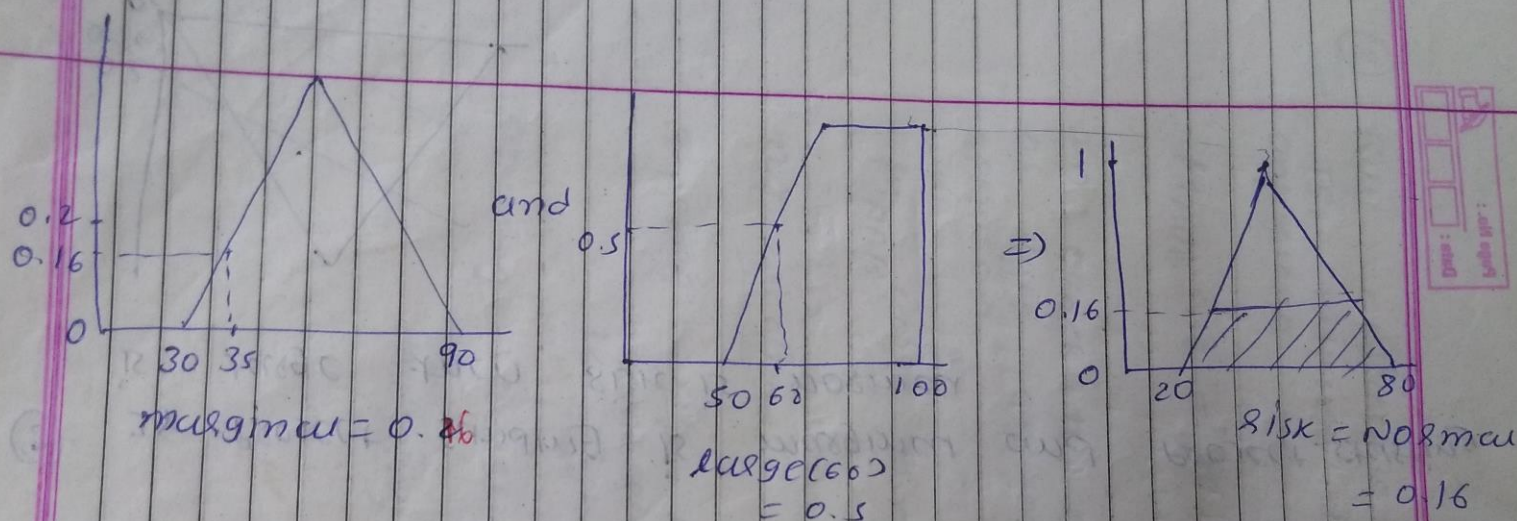 0.2
0.16
0
30 35 90
marginal = 0.16
and
0.5
50 60 100
large(60)
= 0.5
=>
1
0.16
0
20 80
risk = Normal
= 0.16
Date :
Page No. :